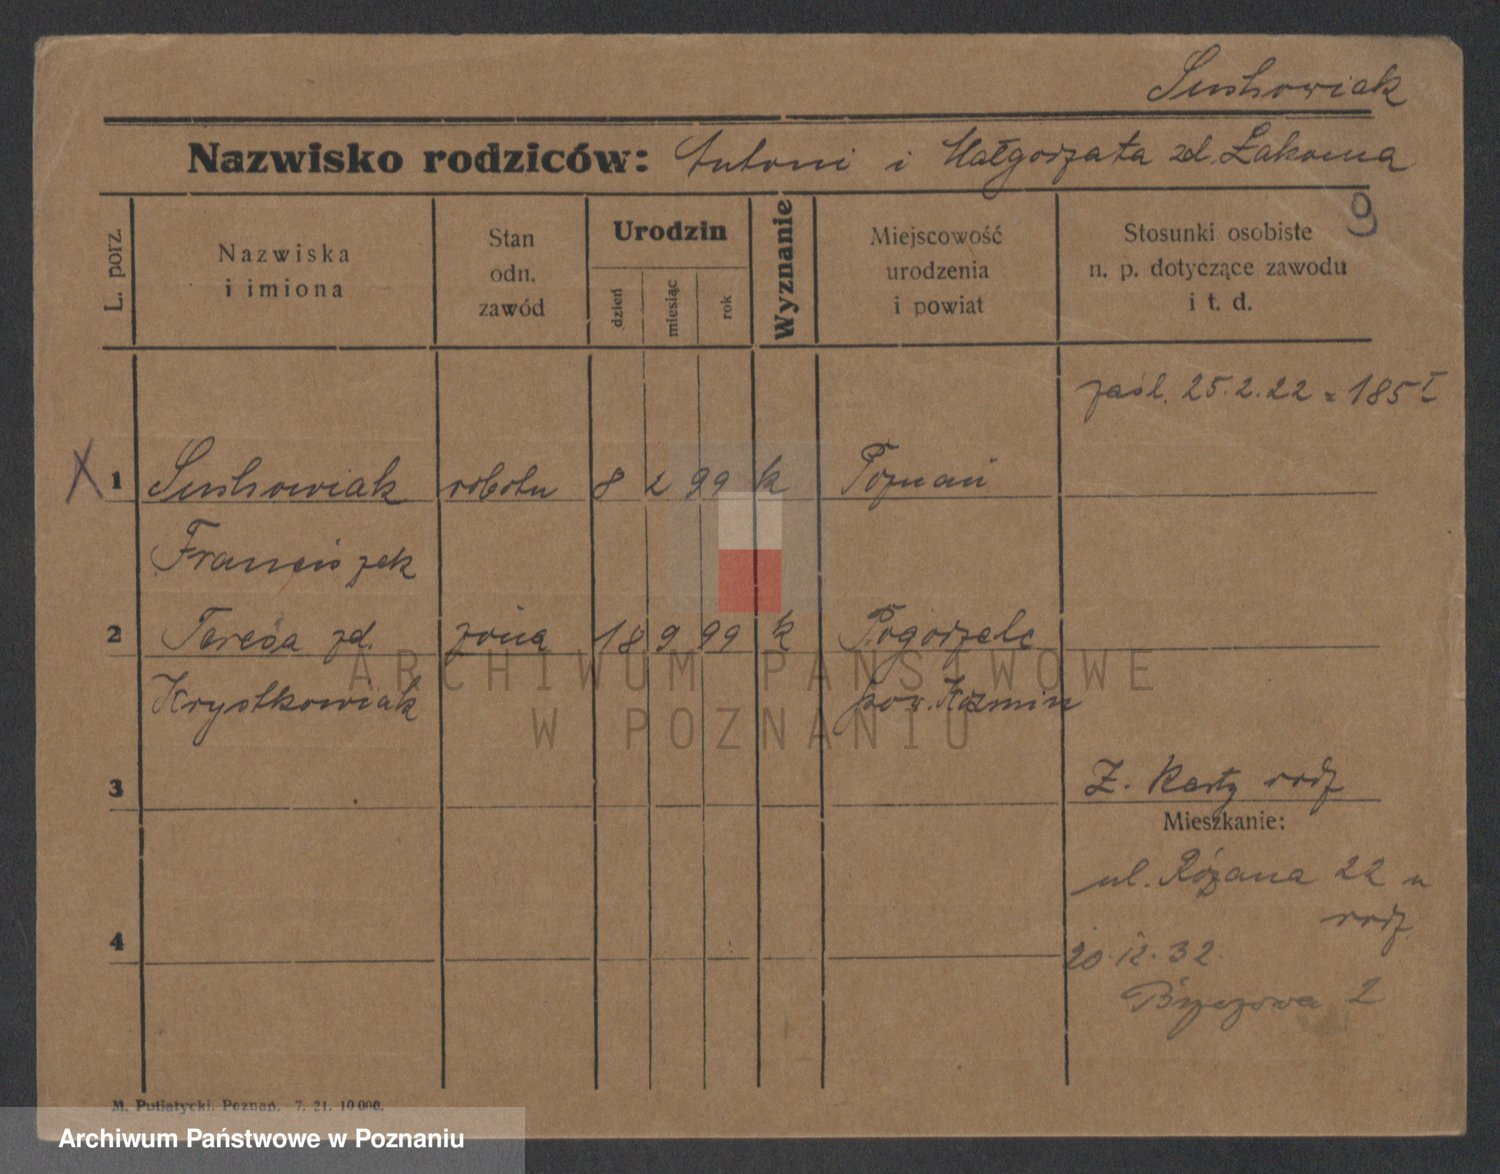 Suchowiak
Nazwisko rodziców: Antoni i Małgorzata zd. Łakoma
9
L. porz.
Nazwiska
i imiona
Stan
odn.
zawód
Urodzin
dzień
miesiąc
rok
Wyznanie
Miejscowość
urodzenia
i powiat
Stosunki osobiste
n. p. dotyczące zawodu
i t. d.
zaśl. 25.2.22 = 185 I
X 1 Suchowiak robotn 8 2 99 k Poznań
Franciszek
2 Teresa zd. żona 18 9 99 k Pogorzele
Krystkowiak pow. Koźmin
3 Z. Karty rodz
Mieszkanie:
ul. Różana 22 u
rodz
4
20.12.32.
Brzozowa 2
M. Putiatycki. Poznań. 7. 21. 10 000.
ARCHIWUM PAŃSTWOWE
W POZNANIU
Archiwum Państwowe w Poznaniu